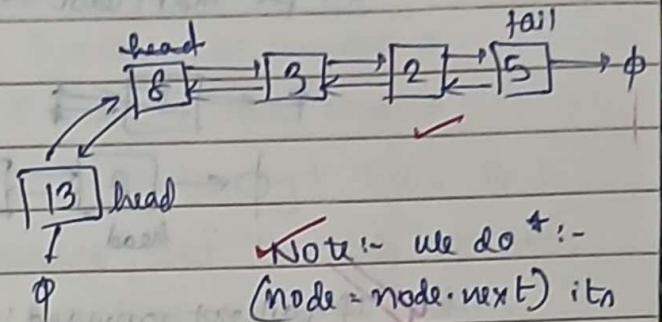 tail
head
8 3 2 5 → φ
13 head
φ
Note :- we do * :-
(node = node.next) its